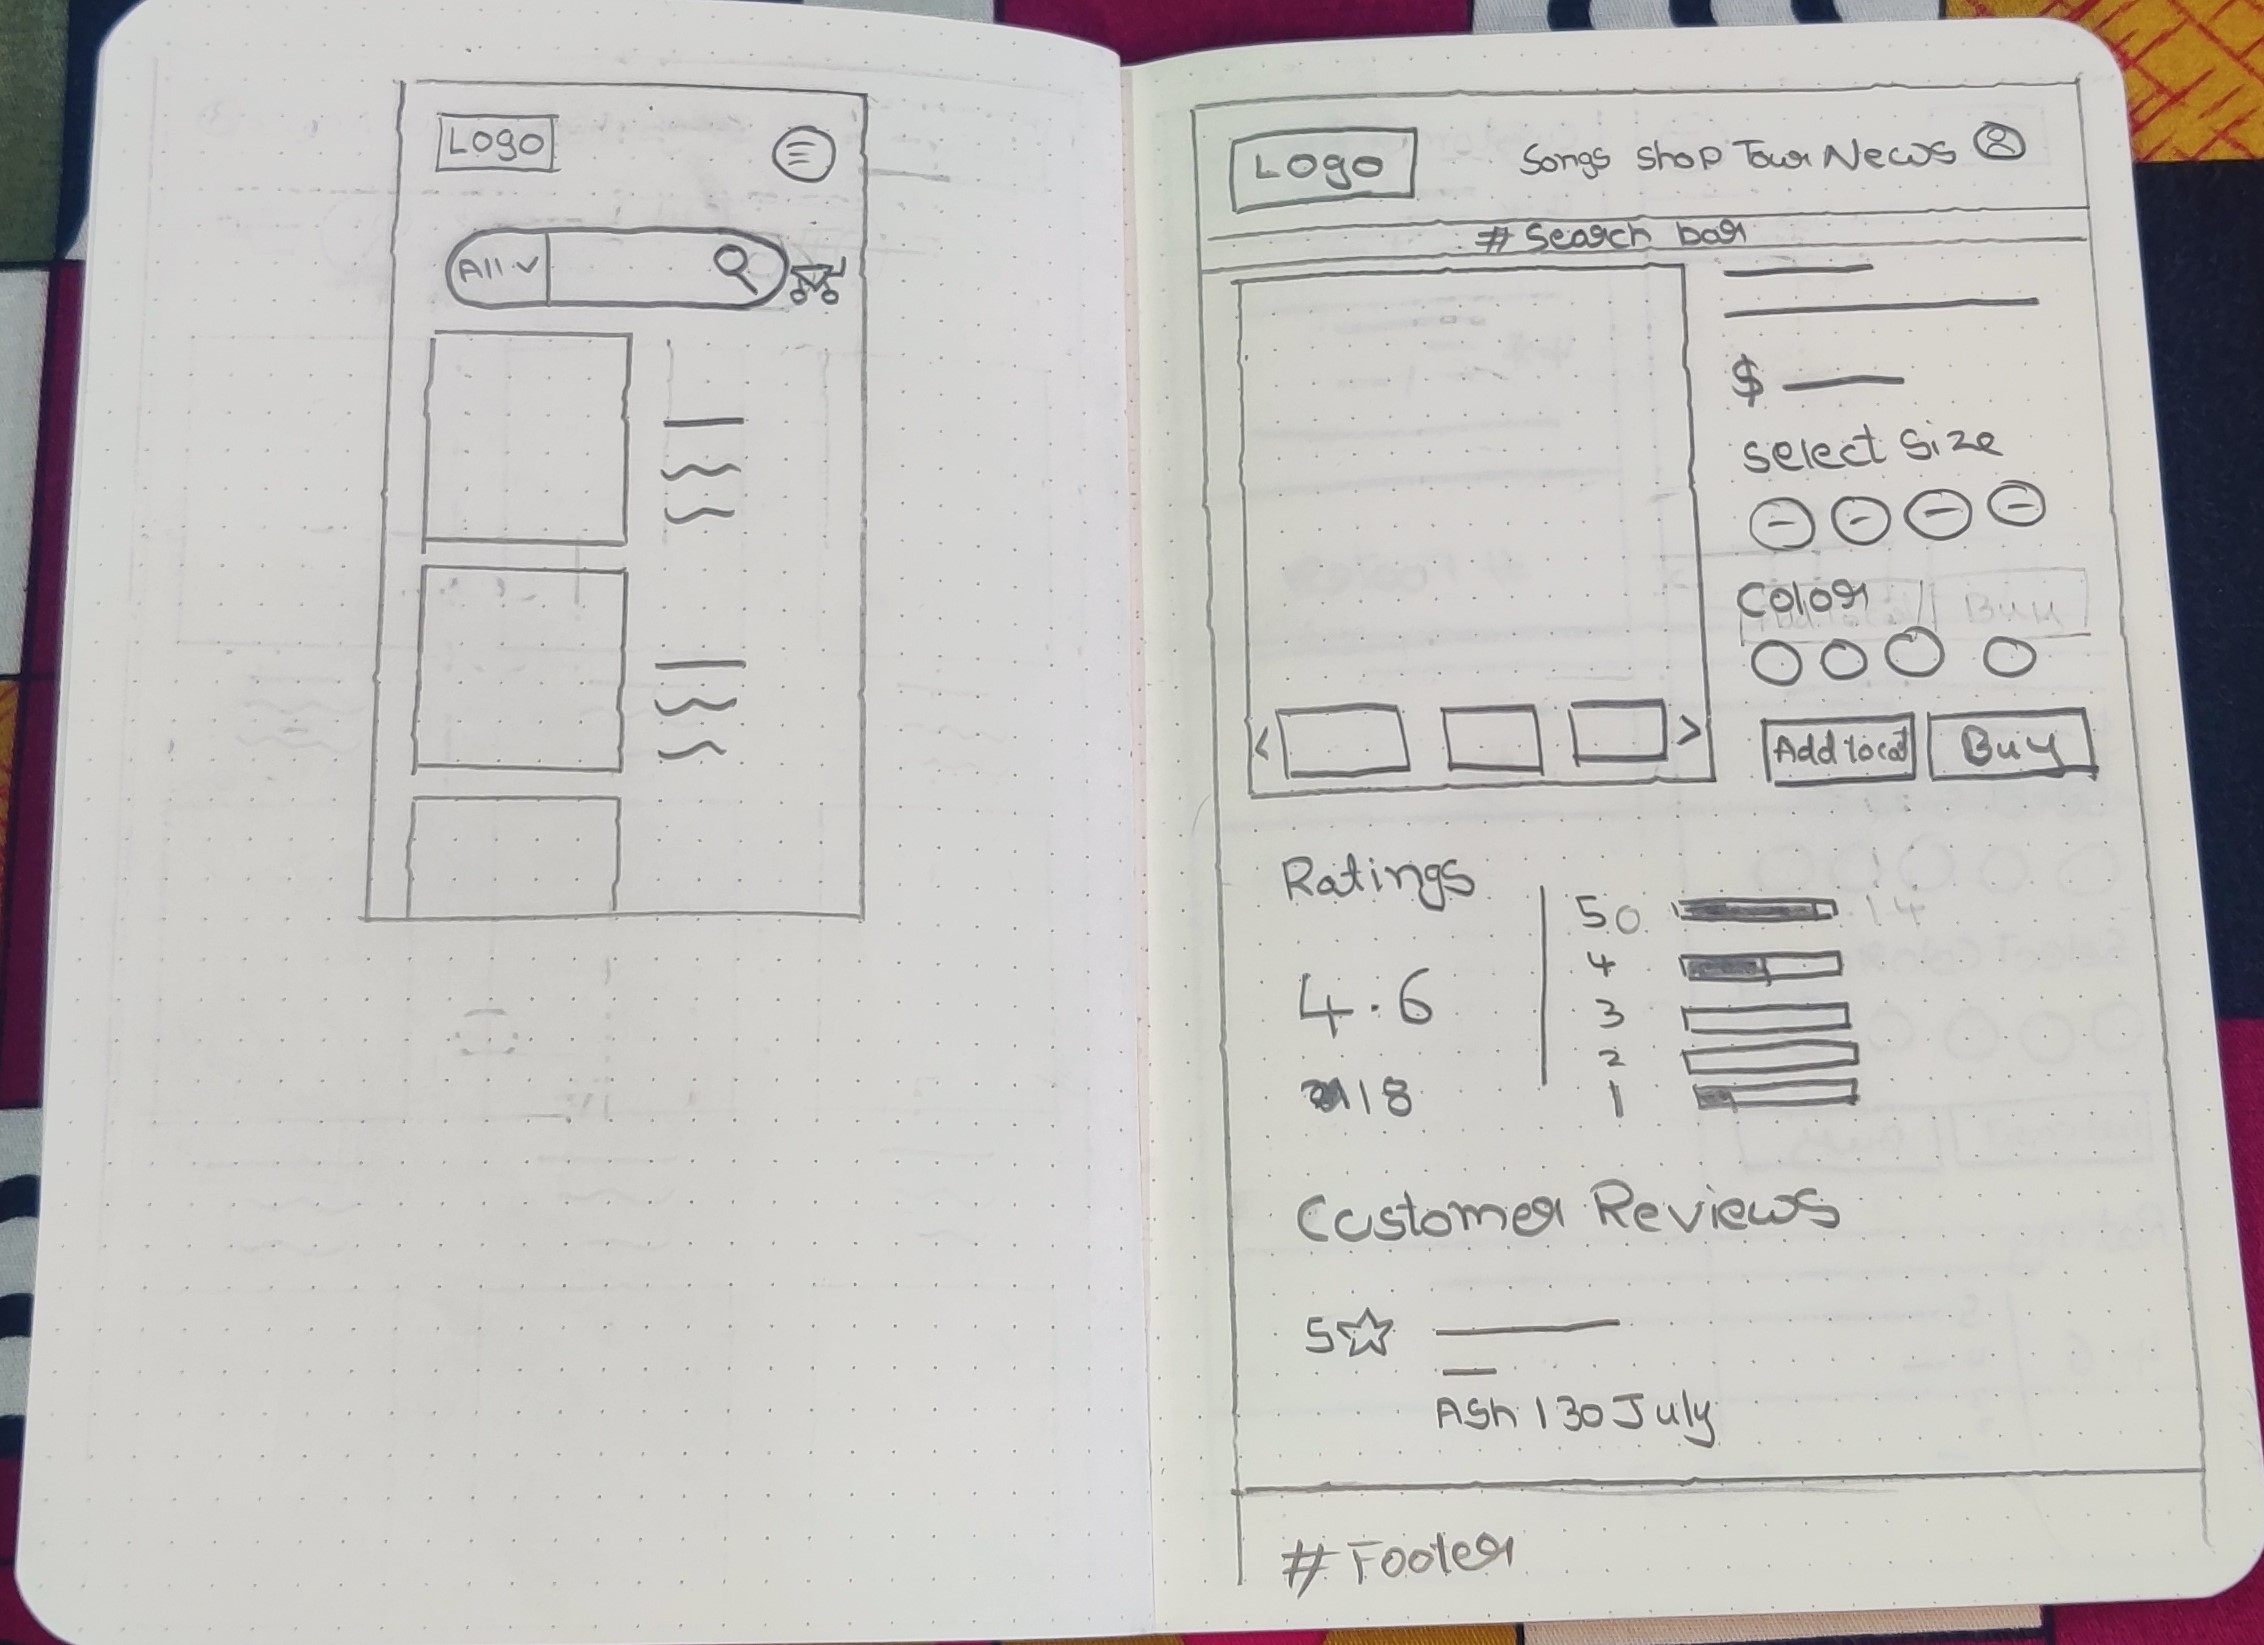 Logo
All
Logo
Songs Shop Tour News
# Search bar
$
Select Size
Color
Add to cat
Buy
Ratings
4.6
18
50
14
4
3
2
1
Customer Reviews
5
Ash | 30 July
# Footer